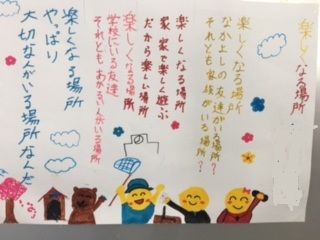 楽しくなる場所
楽しくなる場所
なかよしの友達がいる場所?
それとも家族がいる場所?
楽しくなる場所
家家で楽しく遊ぶ
だから楽しい場所
楽しくなる場所
学校にいる友達
それともあかるい人がいる場所
楽しくなる場所
やっぱり
大切な人がいる場所なんだ